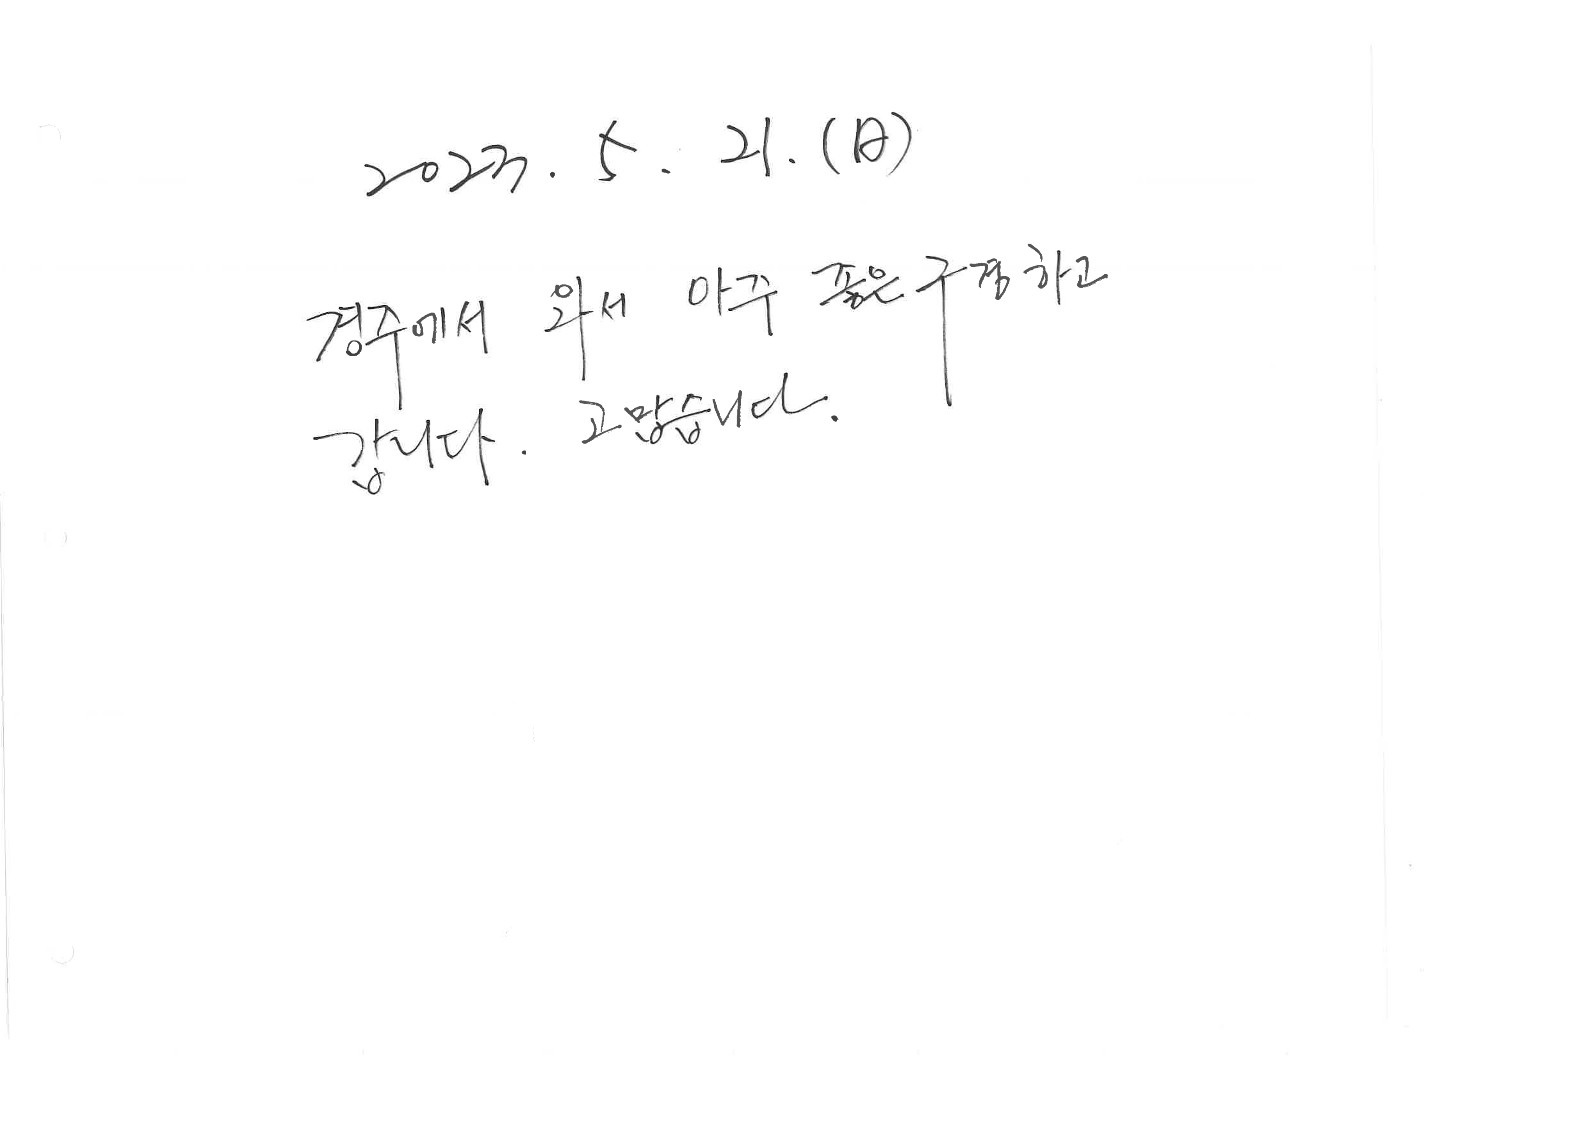 2023. 5. 21. (日)
경주에서 와서 아주 좋은 구경하고
갑니다. 고맙습니다.